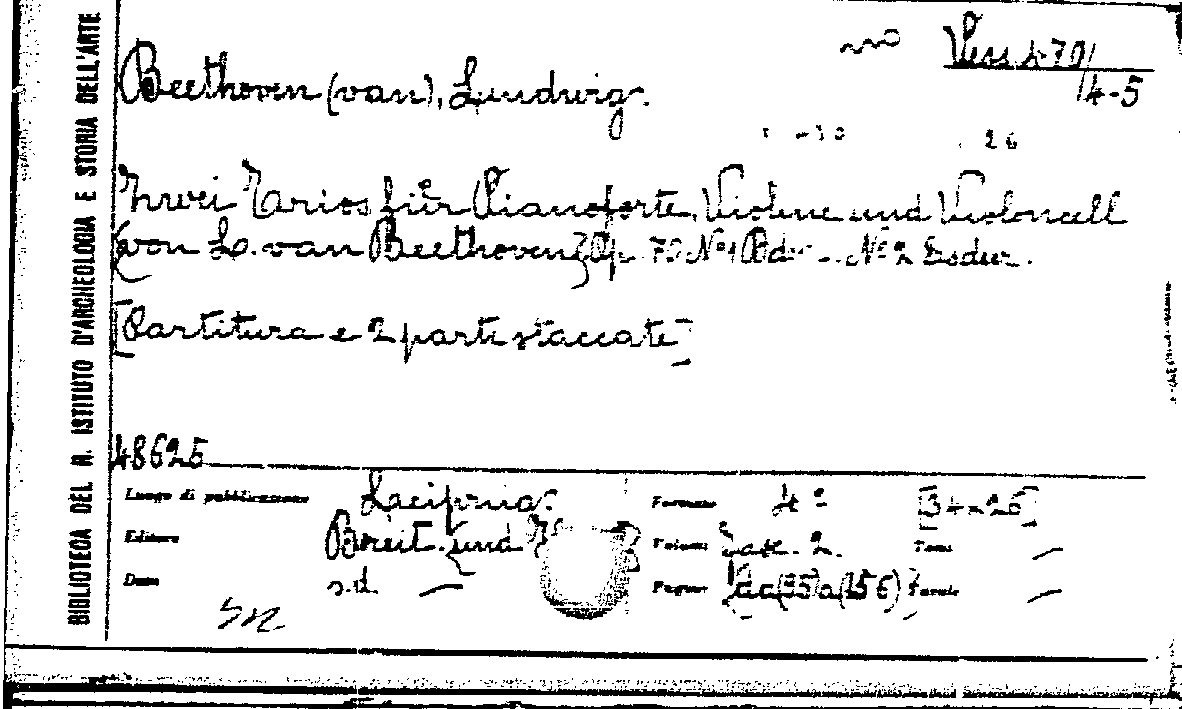 BIBLIOTECA DEL R. ISTITUTO D'ARCHEOLOGIA E STORIA DELL'ARTE
Vess. 4-70/
4-5
Beethoven (van), Lundwig.
26
Zwei Tarios für Pianoforte, Violine und Violoncell
(von L. van Beethoven) Op. 70 Nº1 Ddur - Nº2 Esdur.
[Partitura e 2 parti staccate]
48625
Luogo di pubblicazione Lacipria. Formato 4º [34×26]
Editore Breit. und Volumi Fasc. 2. Tomi —
Data s.d. — Pagine da(95)a(156) Tavole —